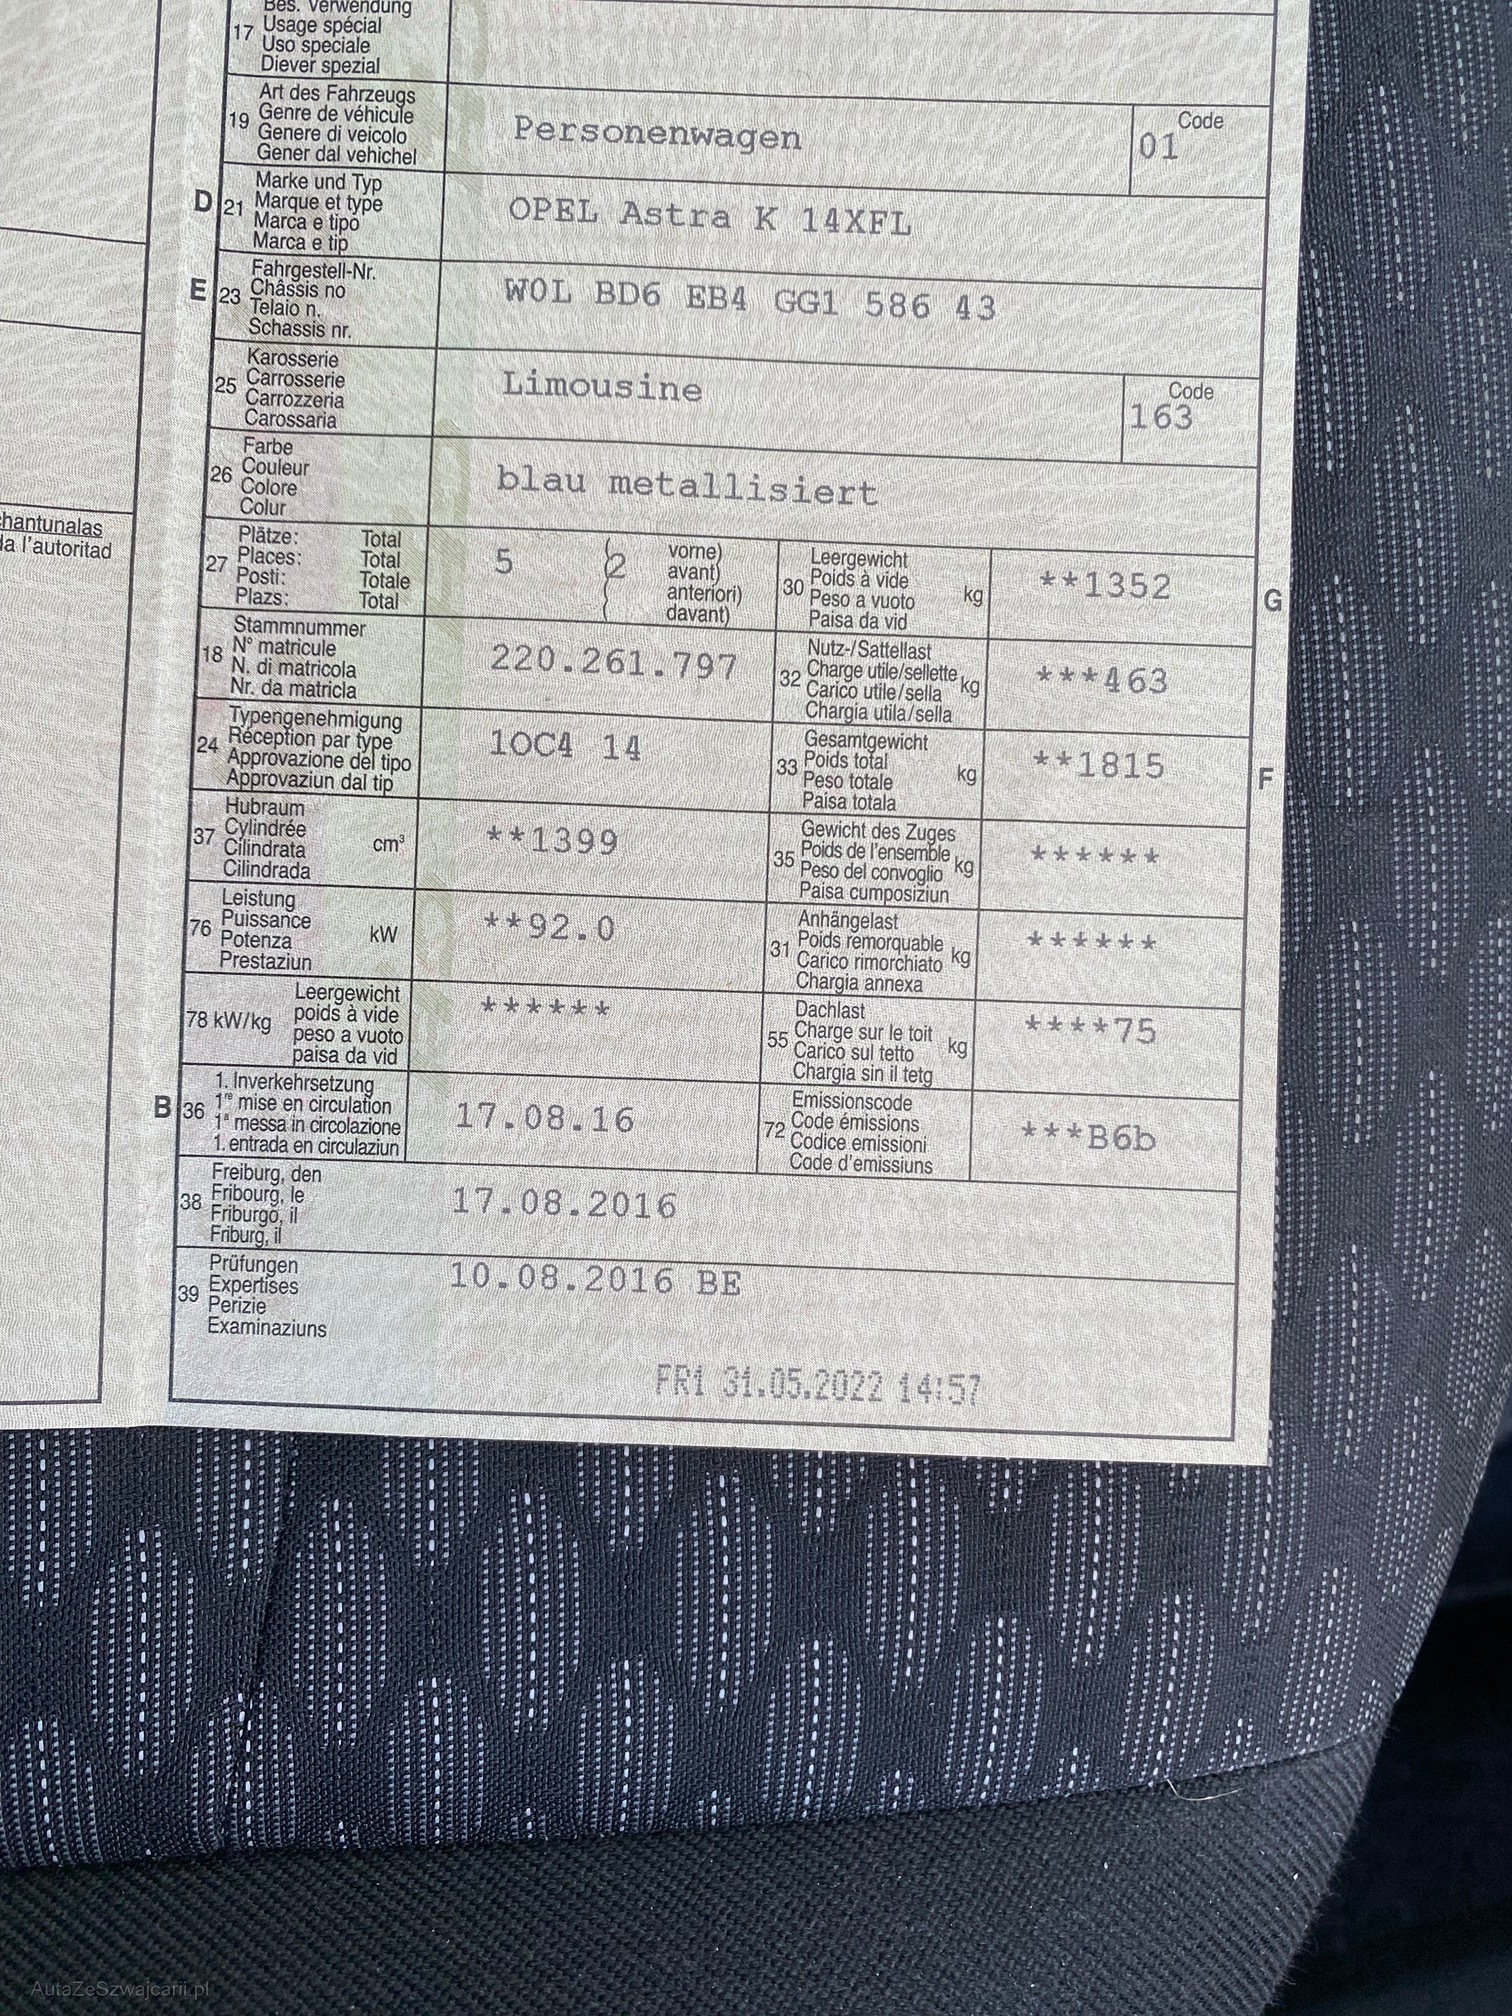 Bes. Verwendung
17 Usage spécial
Uso speciale
Diever spezial
Art des Fahrzeugs
19 Genre de véhicule
Genere di veicolo
Gener dal vehichel
Personenwagen
Code
01
D 21 Marke und Typ
Marque et type
Marca e tipo
Marca e tip
OPEL Astra K 14XFL
E 23 Fahrgestell-Nr.
Châssis no
Telaio n.
Schassis nr.
W0L BD6 EB4 GG1 586 43
25 Karosserie
Carrosserie
Carrozzeria
Carossaria
Limousine
Code
163
26 Farbe
Couleur
Colore
Colur
blau metallisiert
hantunalas
la l'autoritad
27 Plätze: Total
Places: Total
Posti: Totale
Plazs: Total
5 (2 vorne)
avant)
anteriori)
davant)
30 Leergewicht
Poids à vide
Peso a vuoto kg
Paisa da vid
**1352
G
18 Stammnummer
N° matricule
N. di matricola
Nr. da matricla
220.261.797
32 Nutz-/Sattellast
Charge utile/sellette
Carico utile/sella kg
Chargia utila/sella
***463
24 Typengenehmigung
Réception par type
Approvazione del tipo
Approvaziun dal tip
1OC4 14
33 Gesamtgewicht
Poids total
Peso totale kg
Paisa totala
**1815
F
37 Hubraum
Cylindrée
Cilindrata cm³
Cilindrada
**1399
35 Gewicht des Zuges
Poids de l'ensemble
Peso del convoglio kg
Paisa cumposiziun
******
76 Leistung
Puissance
Potenza kW
Prestaziun
**92.0
31 Anhängelast
Poids remorquable
Carico rimorchiato kg
Chargia annexa
******
78 kW/kg Leergewicht
poids à vide
peso a vuoto
paisa da vid
******
55 Dachlast
Charge sur le toit
Carico sul tetto kg
Chargia sin il tetg
****75
B 36 1. Inverkehrsetzung
1re mise en circulation
1a messa in circolazione
1. entrada en circulaziun
17.08.16
72 Emissionscode
Code émissions
Codice emissioni
Code d'emissiuns
***B6b
38 Freiburg, den
Fribourg, le
Friburgo, il
Friburg, il
17.08.2016
39 Prüfungen
Expertises
Perizie
Examinaziuns
10.08.2016 BE
FR1 31.05.2022 14:57
AutaZeSzwajcarii.pl